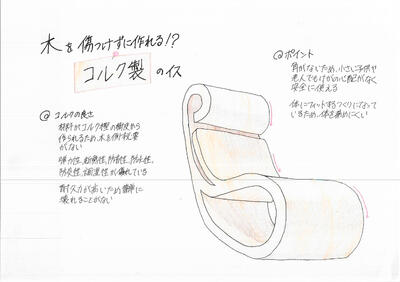 木を傷つけずに作れる!?
コルク製のイス
@ コルクの良さ
材料がコルク樫の樹皮から
作られるため、木を倒す必要
がない
弾力性、断熱性、防音性、防水性、
防炎性、調湿性が優れている
耐久力が高いため簡単に
壊れることがない
@ ポイント
角がないため、小さい子供や
老人でもけがの心配がなく
安全に使える
体にフィットするつくりになって
いるため、体を痛めにくい